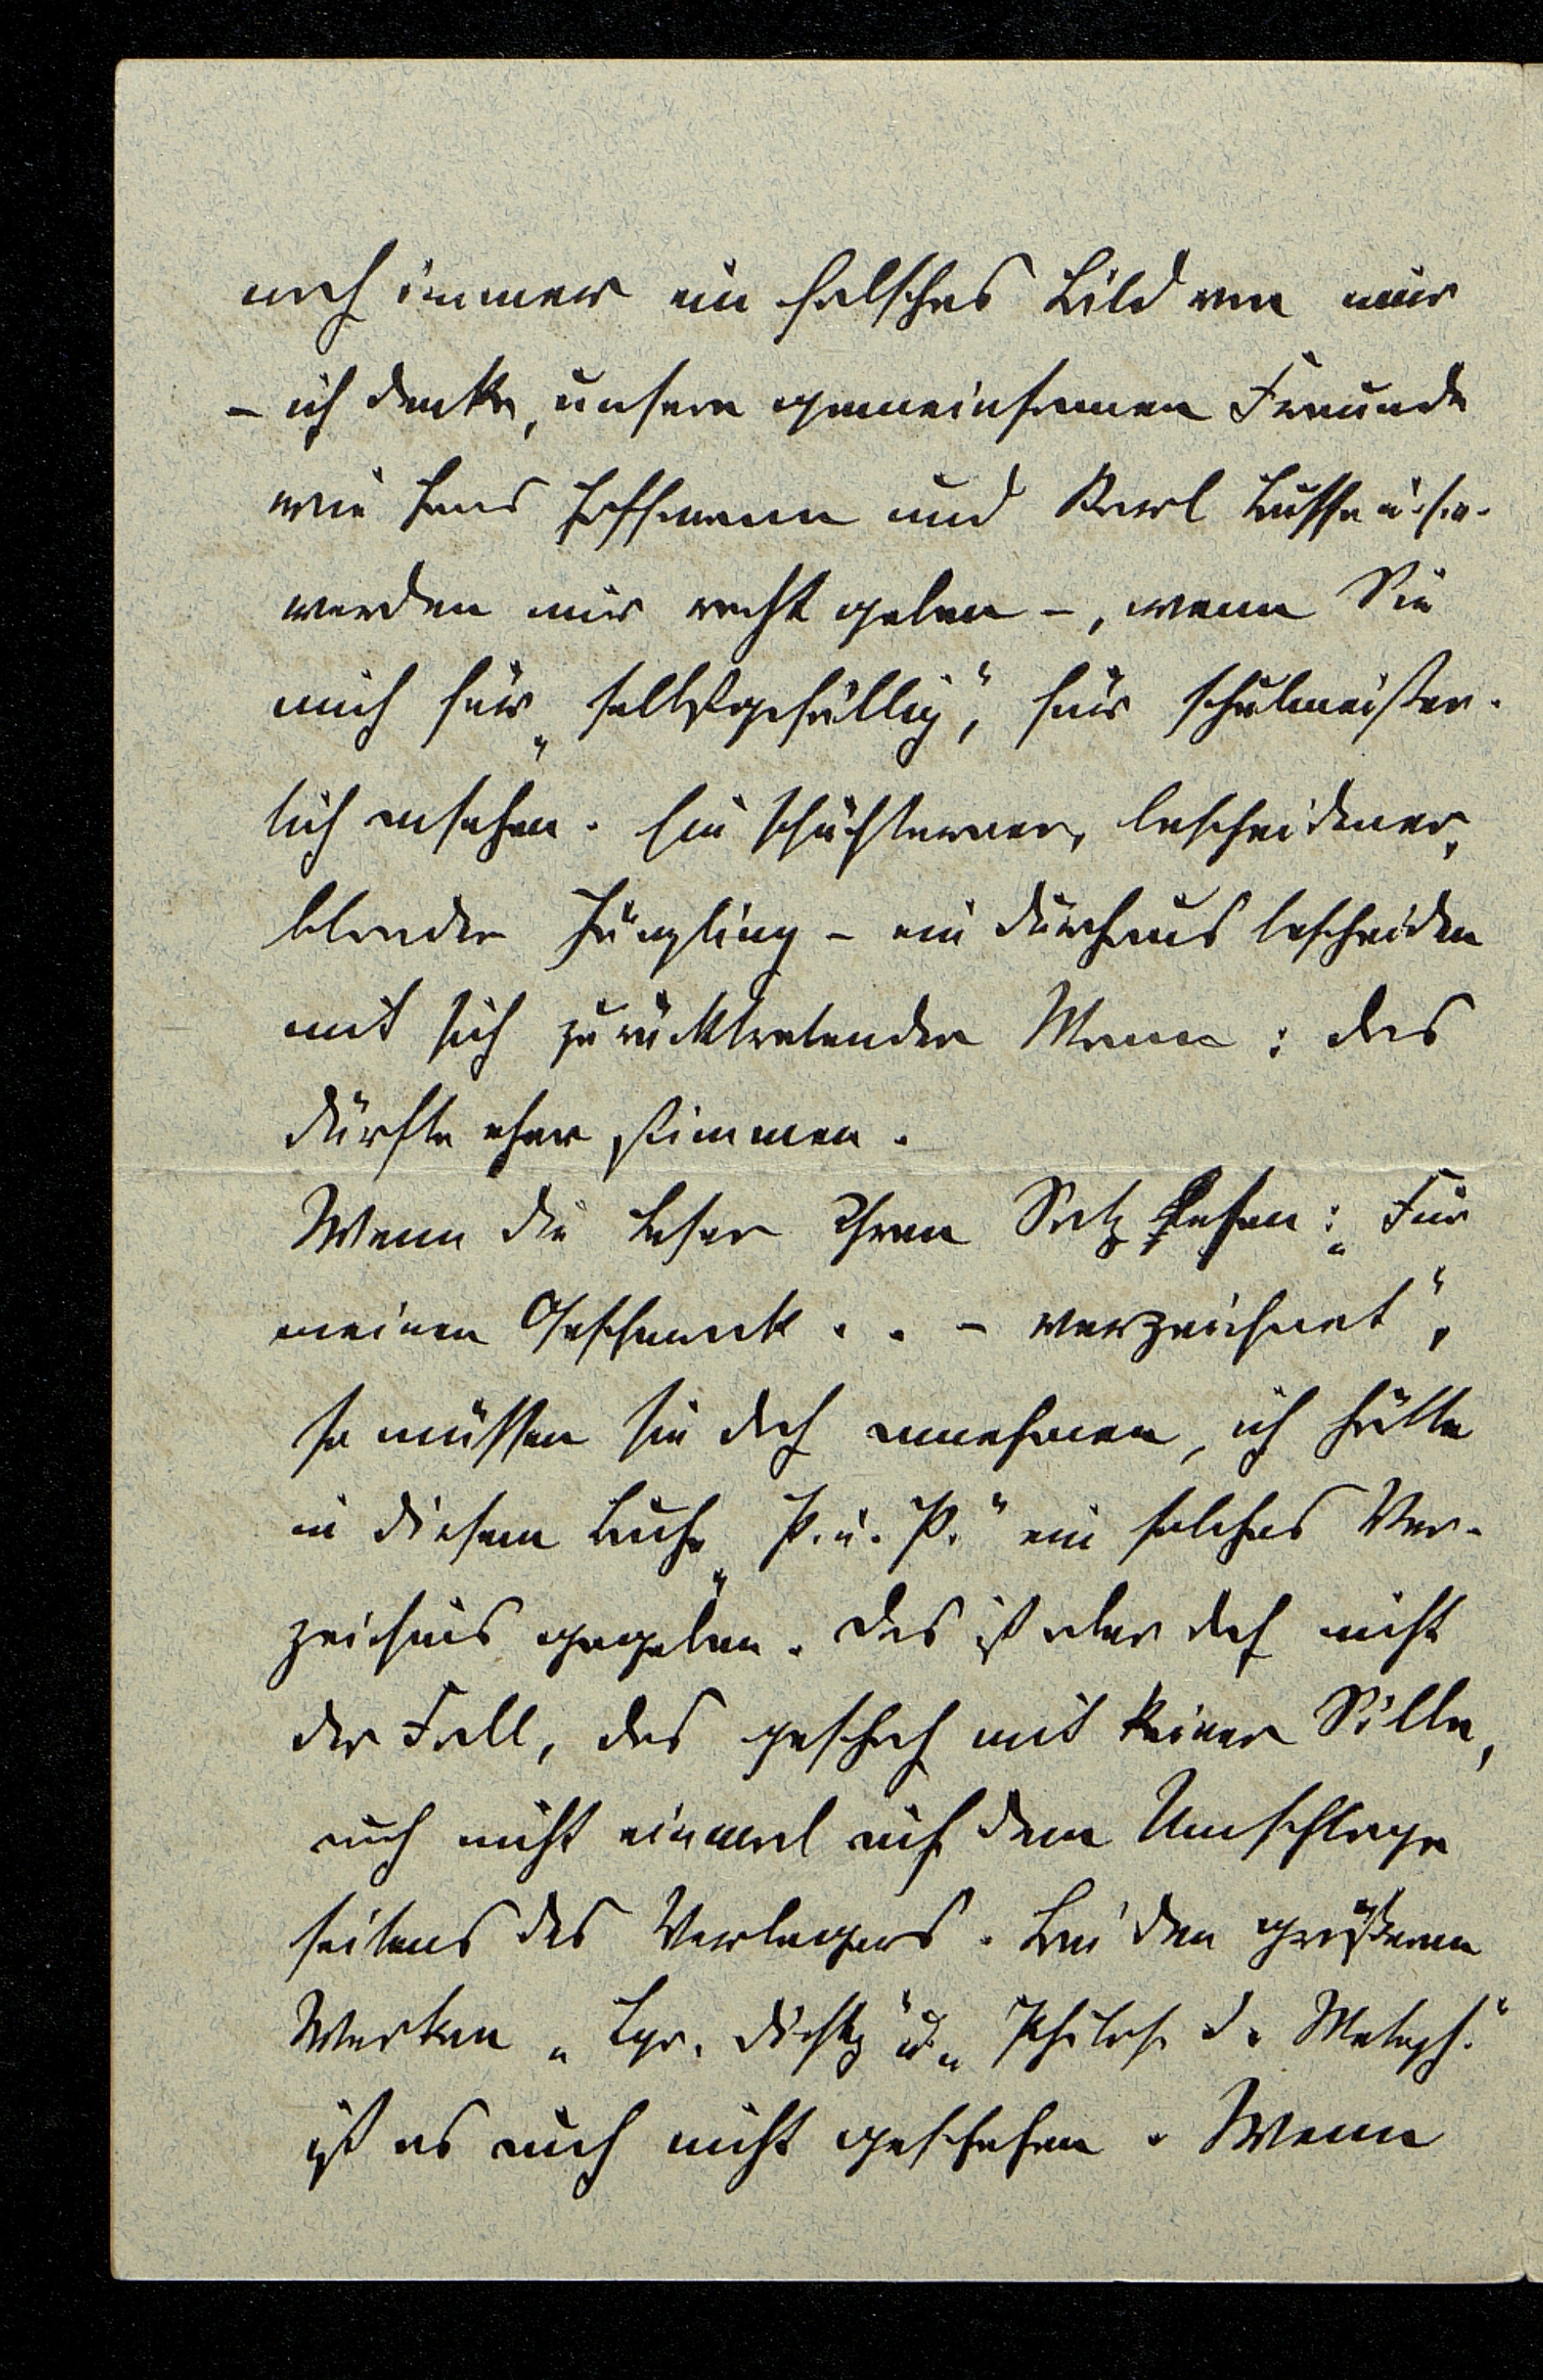 noch immer ein falsches Bild von mir
– ich denke, unsere gemeinsamen Freunde
wie Hans Hoffmann und Karl Busse u. s. w.
werden mir recht geben –, wenn Sie
mich für „selbstgefällig“, für schulmeister-
lich ansehen. Ein schüchterner, bescheidener,
blonder Jüngling – ein durchaus bescheiden
mit sich zurücktretender Mann: das
dürfte eher stimmen.
Wenn die Leser Ihren Satz lesen: „Für
meinen Geschmack . . – verzeichnet“,
so müssen sie doch annehmen, ich hätte
in diesem Buche „P. u. P.“ ein solches Ver-
zeichnis gegeben. Das ist aber doch nicht
der Fall, das geschah mit keiner Silbe,
auch nicht einmal auf dem Umschlage
seitens des Verlegers. Bei den größeren
Werken „Lyr. Dichtg“ u. „Philos. d. Metaph.“
ist es auch nicht geschehen. Wenn